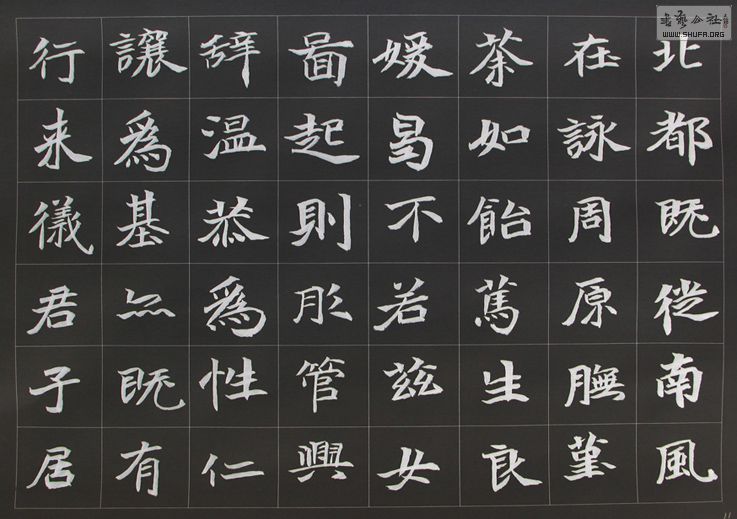 北都既從南風
在詠周原膴堇
荼如飴蔦生良
媛曷不若茲女
啚起則彤管興
辞温恭爲性仁
讓爲基亦既有
行来儀君子居
書藝公社
WWW.SHUFA.ORG
11